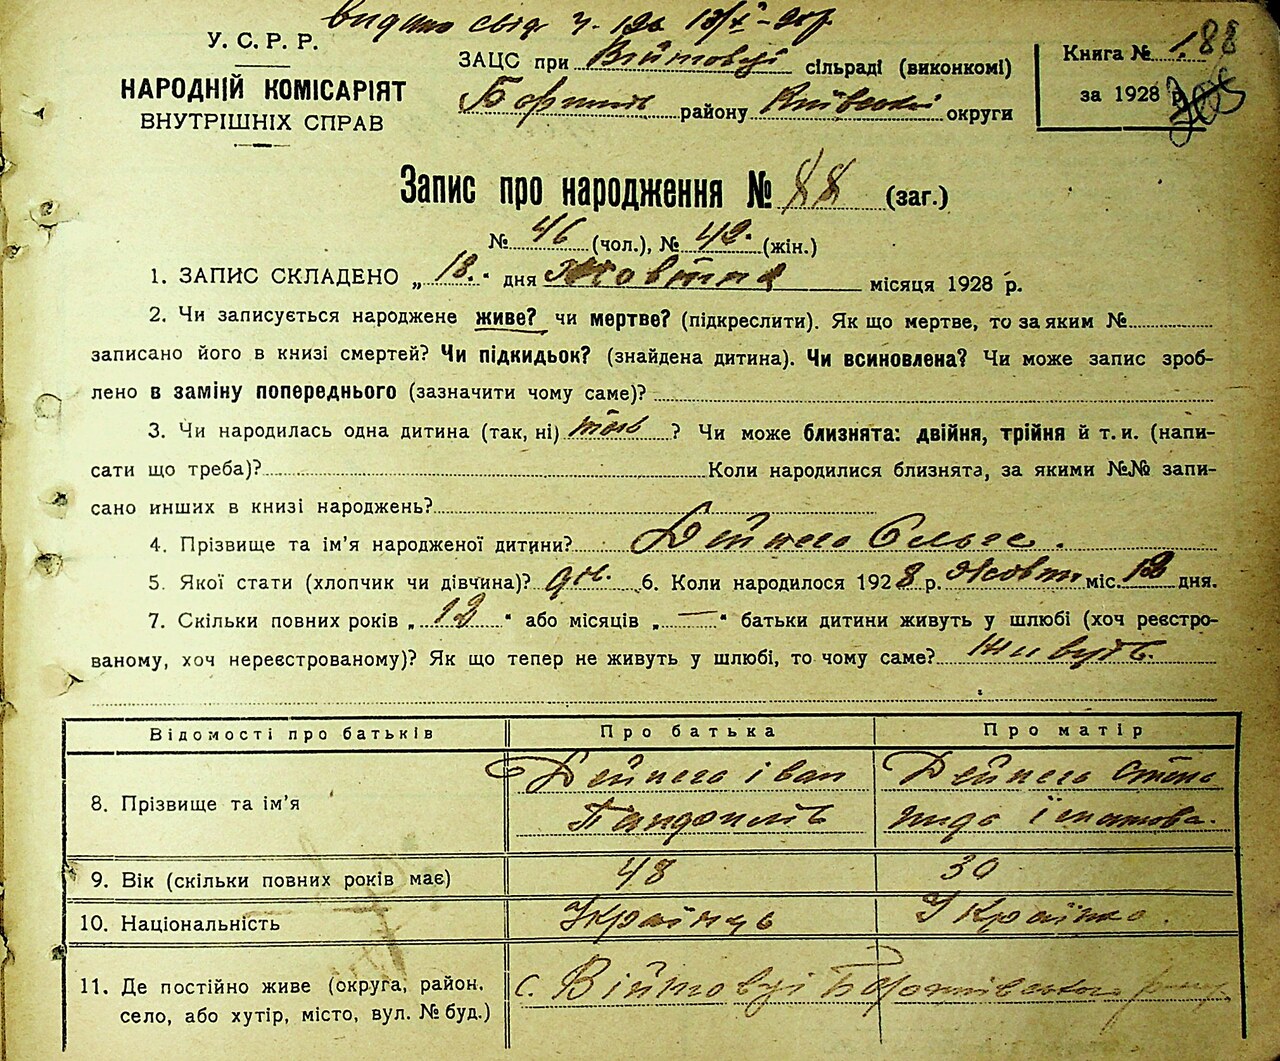 видано свід. ч. 126 18/X-28р
У. С. Р. Р.
НАРОДНІЙ КОМІСАРІЯТ
ВНУТРІШНІХ СПРАВ
ЗАЦС при Війтовці сільраді (виконкомі)
району Київської округи
Книга № 1. 88
за 1928 р.
Запис про народження № 88 (заг.)
№ 46 (чол.), № 42. (жін.)
1. ЗАПИС СКЛАДЕНО „ 18. “ дня Жовтня місяця 1928 р.
2. Чи записується народжене живе? чи мертве? (підкреслити). Як що мертве, то за яким №
записано його в книзі смертей? Чи підкидьок? (знайдена дитина). Чи всиновлена? Чи може запис зроб-
лено в заміну попереднього (зазначити чому саме)?
3. Чи народилась одна дитина (так, ні) так ? Чи може близнята: двійня, трійня й т. и. (напи-
сати що треба)? Коли народилися близнята, за якими №№ запи-
сано инших в книзі народжень?
4. Прізвище та ім’я народженої дитини? Дейнега Ольга.
5. Якої статі (хлопчик чи дівчина)? дів. 6. Коли народилося 1928 р. Жовтн міс. 12 дня.
7. Скільки повних років „ 12 “ або місяців „ — “ батьки дитини живуть у шлюбі (хоч реєстро-
ваному, хоч нереєстрованому)? Як що тепер не живуть у шлюбі, то чому саме? Живуть.
Відомості про батьків Про батька Про матір
8. Прізвище та ім’я Дейнега іван Дейнега Степа
нида
9. Вік (скільки повних років має) 48 30
10. Національність Українць Українка.
11. Де постійно живе (округа, район, с. Війтовці
село, або хутір, місто, вул. № буд.)